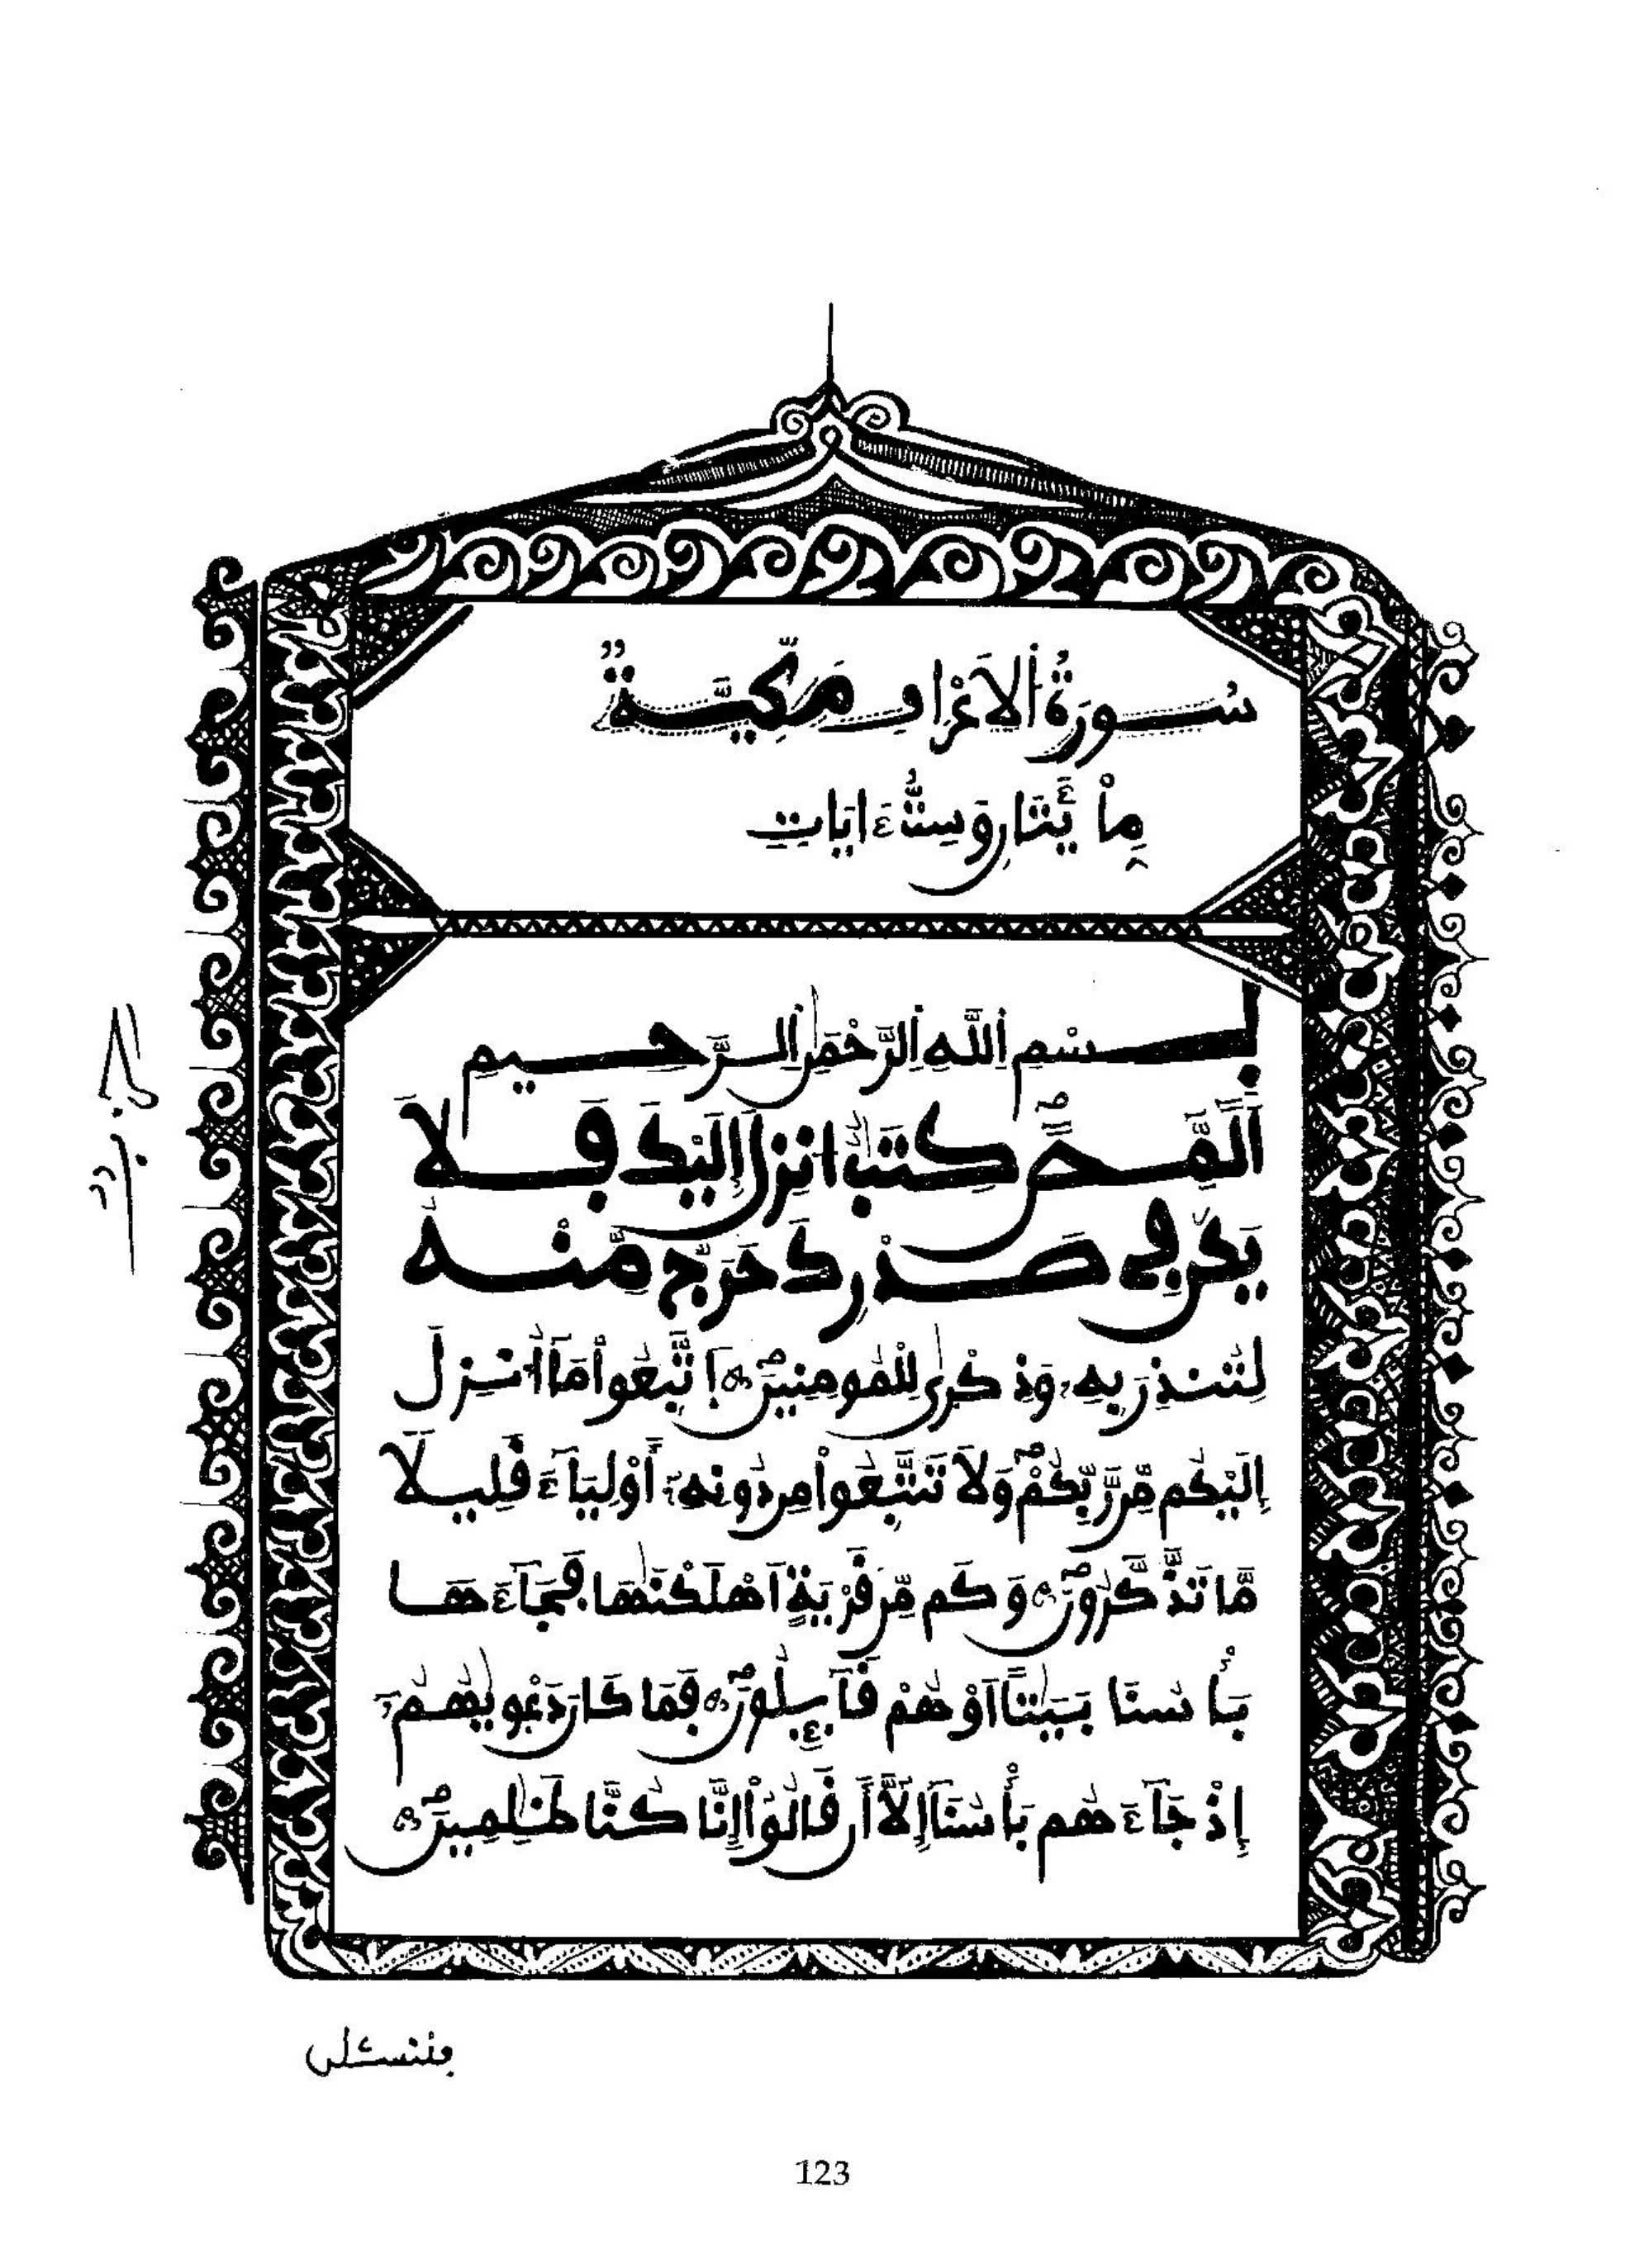 سُورَةُ اَ۬لَاعْرَافِ مَكِّيَّةٌ
مِاْيَتَانِ وَسِتُّ ءَايَاتٍ
بِسْمِ اِ۬للَّهِ اِ۬لرَّحْمَٰنِ اِ۬لرَّحِيمِ
أَلَٓمِّٓصَٓ كِتَٰبٌ ا۟نزِلَ إِلَيْكَ فَلَا
يَكُن فِي صَدْرِكَ حَرَجٌ مِّنْهُ
لِتُنذِرَ بِهِۦ وَذِكْرَىٰ لِلْمُومِنِينَ اَ۪تَّبِعُوا۟ مَآ أُنزِلَ
إِلَيْكُم مِّن رَّبِّكُمْ وَلَا تَتَّبِعُوا۟ مِن دُونِهِۦٓ أَوْلِيَآءَ قَلِيلًا
مَّا تَذَّكَّرُونَ وَكَم مِّن قَرْيَةٍ اَهْلَكْنَٰهَا فَجَآءَهَا
بَأْسُنَا بَيَٰتًا اَوْ هُمْ قَآئِلُونَ فَمَا كَانَ دَعْوَىٰهُمُۥٓ
إِذْ جَآءَهُم بَأْسُنَآ إِلَّآ أَن قَالُوٓا۟ إِنَّا كُنَّا ظَٰلِمِينَ
123